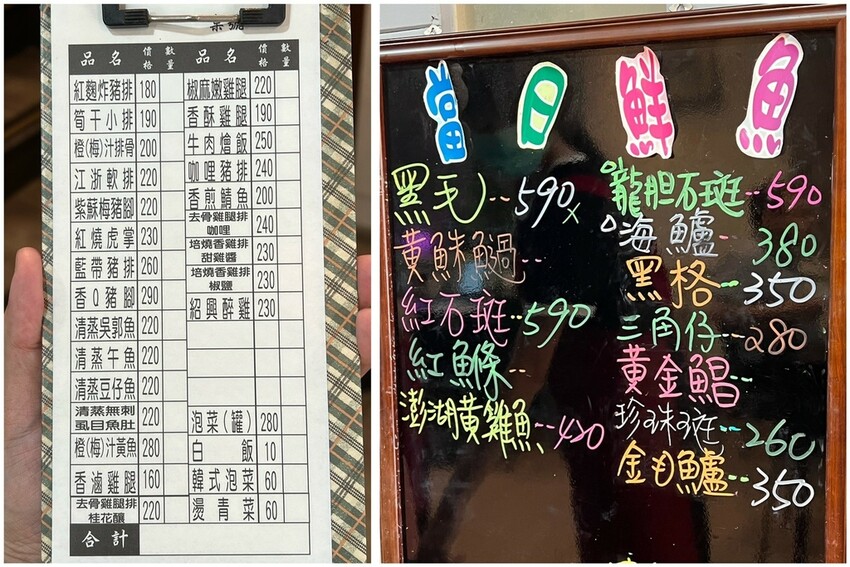 品名 價格 數量 品名 價格 數量
紅麴炸豬排 180
筍干小排 190
橙(梅)汁排骨 200
江浙軟排 220
紫蘇梅豬腳 220
紅燒虎掌 230
藍帶豬排 260
香Q豬腳 290
清蒸吳郭魚 220
清蒸午魚 220
清蒸豆仔魚 220
清蒸無刺虱目魚肚 220
橙(梅)汁黃魚 280
香滷雞腿 160
去骨雞腿排桂花釀 220
合計
椒麻嫩雞腿 220
香酥雞腿 190
牛肉燴飯 250
咖哩豬排 240
香煎鯖魚 200
去骨雞腿排咖哩 240
培燒香雞排甜雞醬 230
培燒香雞排椒鹽 230
紹興醉雞 230
泡菜(罐) 280
白飯 10
韓式泡菜 60
燙青菜 60
當日鮮魚
黑毛--590x
黃魚朱魚過--
紅石斑--590
紅魚條--
澎湖黃雞魚--420
龍胆石斑--590
海鱸--380
黑格--350
三角仔--280
黃金鯧--
珍珠斑--260
金目鱸--350